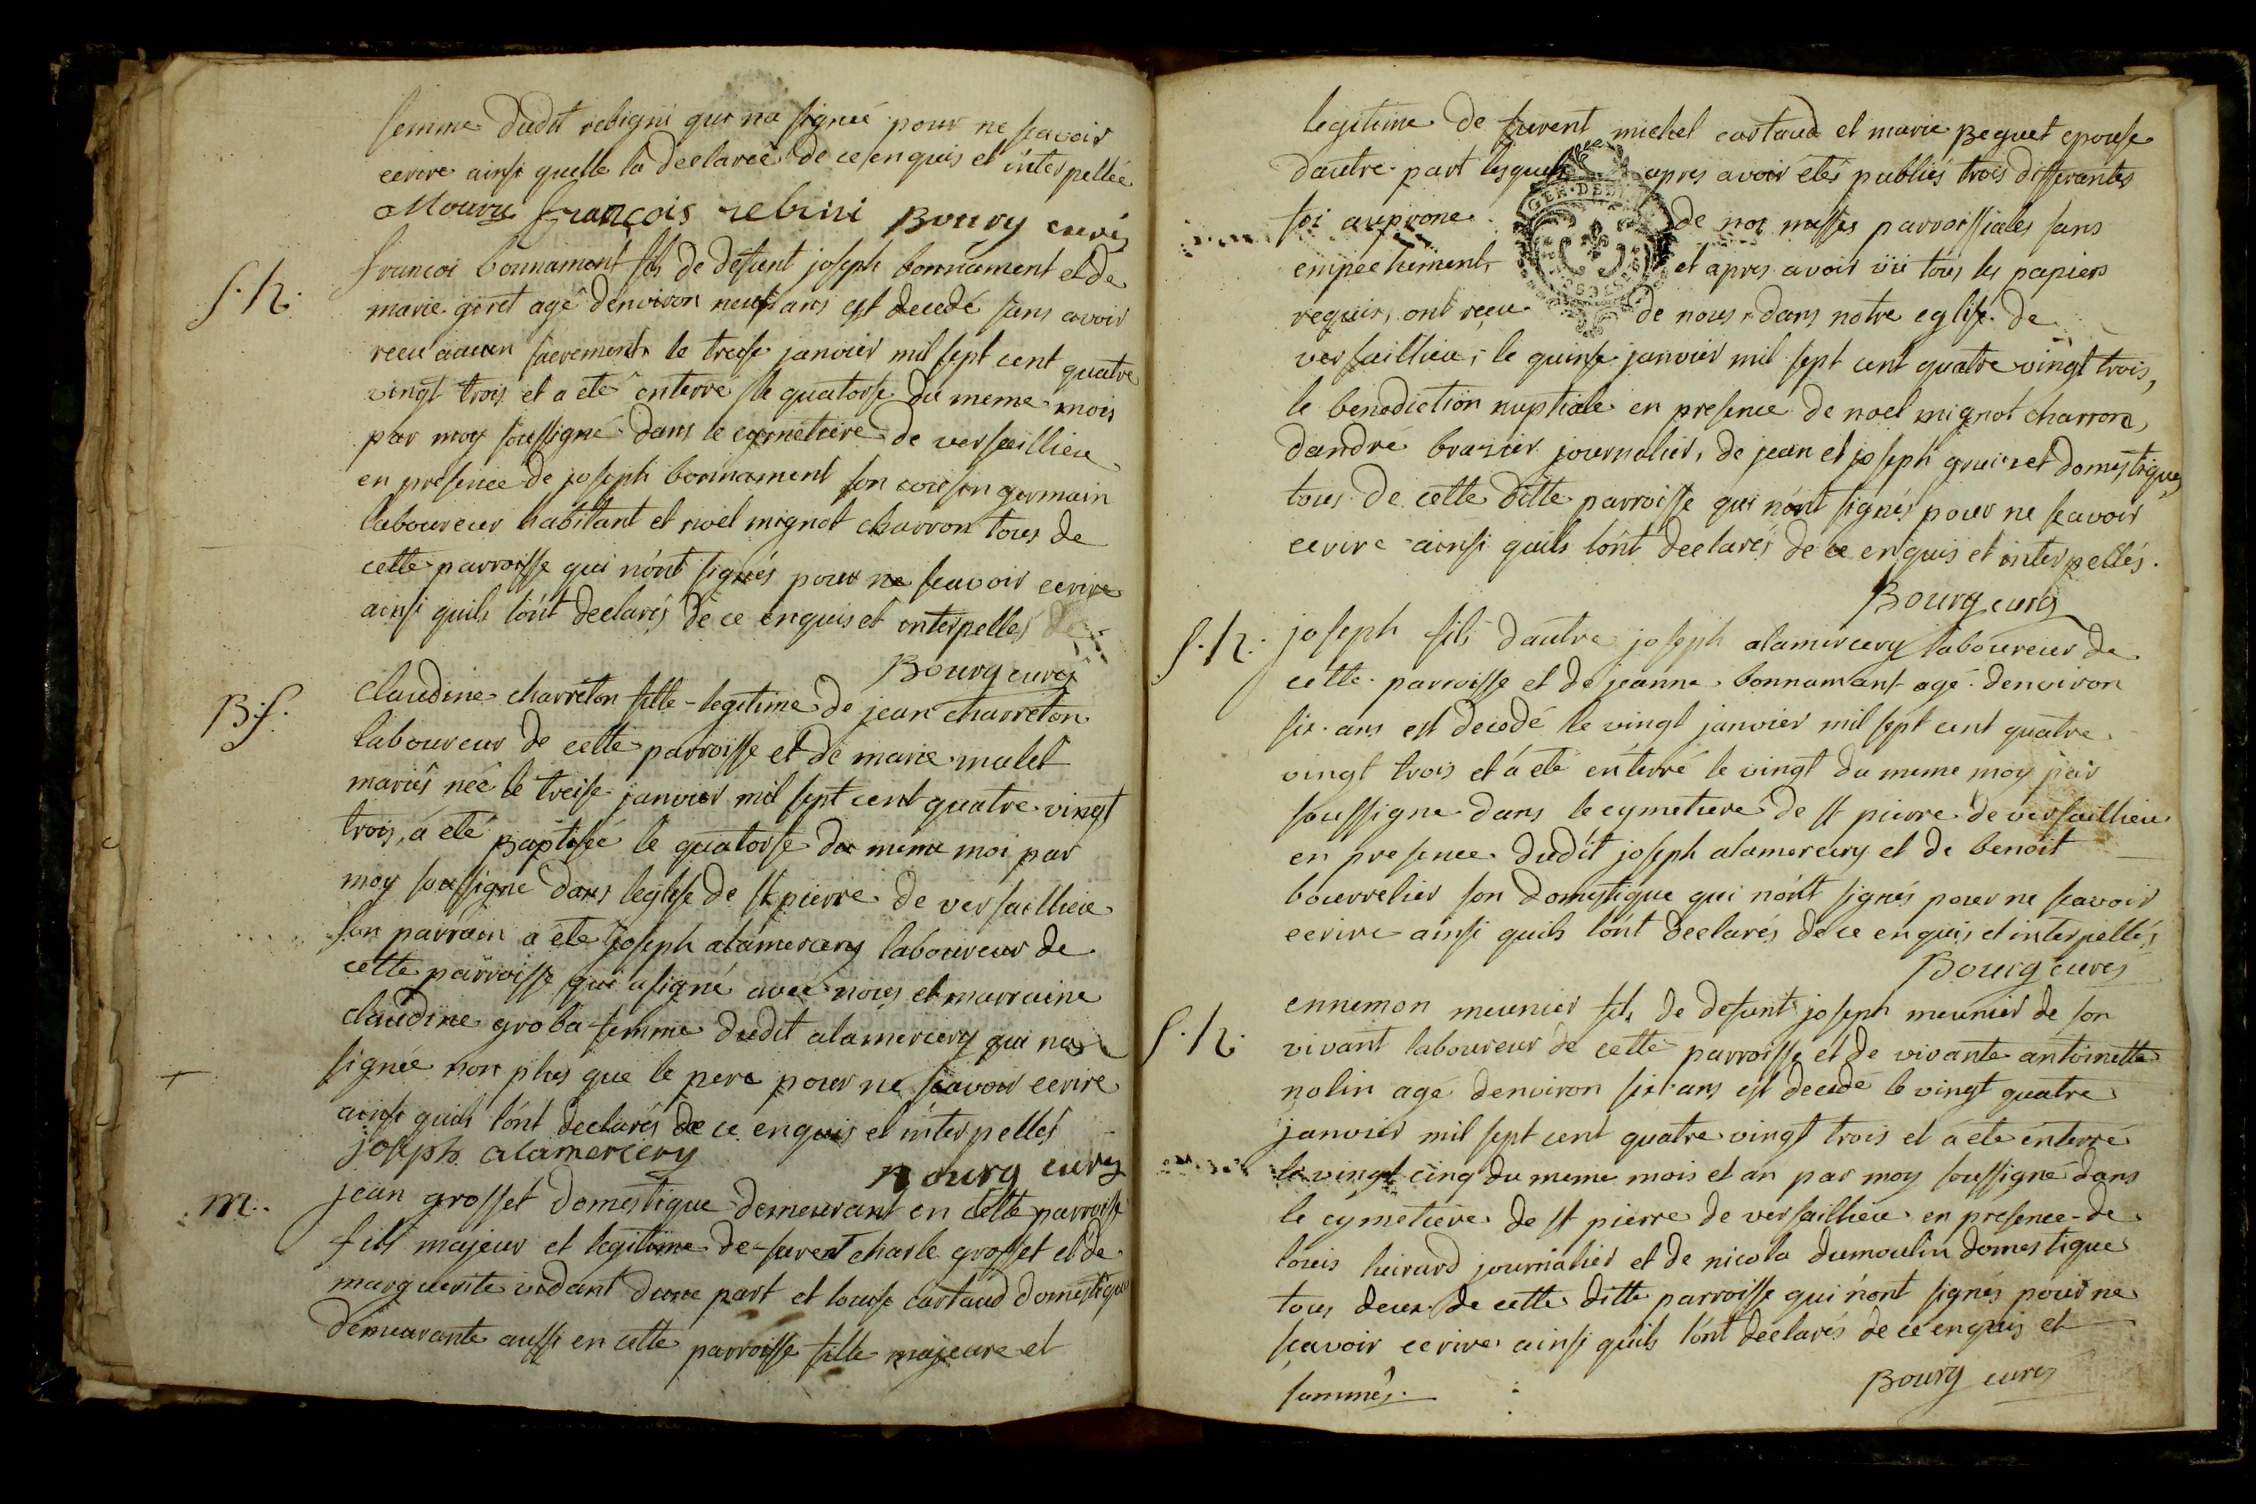 femme dudit rebigni qui na signée pour ne scavoir
ecrire ainsi quelle la declarée de ce enquis et interpellée
françois rebini Bourg curé
S. h. francoi bonnamont fils de defunt joseph bonnament et de
marie giret agé denviron neuf ans est decedé sans avoir
recu aucun sacrements le treise janvier mil sept cent quatre
vingt trois et a eté enterré le quatorse du meme mois
par moy soussigné dans le cymetiere de versaillieu
en presence de joseph bonnament son coussin germain
laboureur habitant et noel mignot charron tous de
cette parroisse qui n'ont signés pour ne scavoir ecrire
ainsi quils lónt declarés de ce enquis et interpellés
Bourg curé
B. f. claudine charreton fille legitime de jean charreton
laboureur de cette parroisse et de marie mulet
mariés née le treise janvier mil sept cent quatre vingt
trois, a eté Baptisée le quatorse du meme moi par
moy soussigne dans leglise de st pierre de versaillieu
son parrain a eté joseph alamercery laboureur de
cette parroisse qui a signé avec nous et marraine
claudine groba femme dudit alamercery qui na
signée non plus que le pere pour ne scavoir ecrire
ainsi quils lónt declarés de ce enquis et interpellés
joseph alamercery Bourg curé
m. jean grosset domestique demeurant en cette parroisse
fils majeur et legitime de furent charle grosset et de
marguerite vidant dune part et louise cartaud domestique
demeurante aussi en cette parroisse fille majeure et
legitime de furent michel cartaud et marie Beguet epouse
dautre part lesquels apres avoir étés publiés trois differantes
foi au prone de nos messes parroissiales sans
empechement et apres avoir vü tous les papiers
requis, ont reçu de nous dans notre eglise de
versaillieu, le quinse janvier mil sept cent quatre vingt trois,
le benediction nuptiale en presence de noel mignot charron,
dandré brasier journalier, de jean et joseph gruiset domestiques
tous de cette ditte parroisse qui nónt signés pour ne scavoir
ecrire ainsi quils lónt declarés de ce enquis et interpellés.
Bourg curé
S. h. joseph fils dautre joseph alamercery laboureur de
cette parroisse et de jeanne bonnamant agé denviron
six ans est decedé le vingt janvier mil sept cent quatre
vingt trois et a eté énterré le vingt du meme moy par
soussigne dans le cymetiere de st pierre de versaillieu
en presence dudit joseph alamercery et de benoit
bourrelier son domestique qui nónt signés pour ne scavoir
ecrire ainsi quils lónt declarés de ce enquis et interpellés
Bourg curé
S. h. ennemon meunier fils de defunt joseph meunier de son
vivant laboureur de cette parroisse et de vivante antoinette
nolin agé denviron six ans est decedé le vingt quatre
janvier mil sept cent quatre vingt trois et a eté énterré
le vingt cinq du meme mois et an par moy soussigné dans
le cymetiere de st pierre de versaillieu en presence de
louis heirard journalier et de nicola dumoulin domestique
tous deux de cette ditte parroisse qui nónt signés pour ne
scavoir ecrire ainsi quils lónt declarés de ce enquis et
sommés. Bourg curé